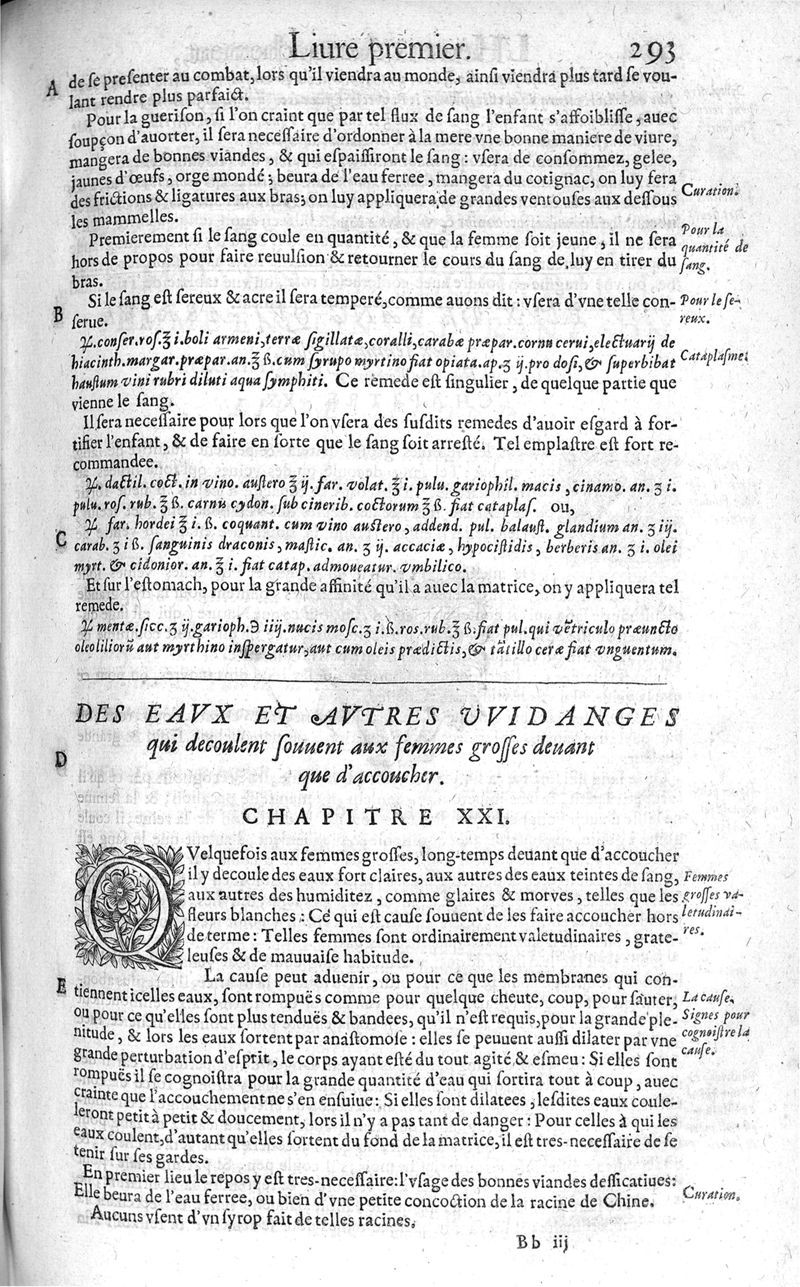 Liure premier. 293
A de se presenter au combat, lors qu'il viendra au monde, ainsi viendra plus tard se vou-
lant rendre plus parfaict.
Pour la guerison, si l'on craint que par tel flux de sang l'enfant s'affoiblisse, auec
soupçon d'auorter, il sera necessaire d'ordonner à la mere vne bonne maniere de viure,
mangera de bonnes viandes, & qui espaissiront le sang : vsera de consommez, gelee,
jaunes d'œufs, orge mondé ; beura de l'eau ferree, mangera du cotignac, on luy fera
des frictions & ligatures aux bras; on luy appliquera de grandes ventouses aux dessous
Curation.
les mammelles.
Premierement si le sang coule en quantité, & que la femme soit jeune, il ne sera
hors de propos pour faire reuulsion & retourner le cours du sang de luy en tirer du
bras.
Pour la
quantité de
sang.
B Si le sang est sereux & acre il sera temperé, comme auons dit : vsera d'vne telle con-
serue.
Pour le se-
reux.
♃. conser. ros. ℥ i. boli armeni, terræ sigillatæ, coralli, carabæ præpar. cornu cerui, electuarij de
hiacinth. margar. præpar. an. ℥ ß. cum syrupo myrtino fiat opiata. ap. ʒ ij. pro dosi, & superbibat
Cataplasme.
haustum vini rubri diluti aqua symphiti. Ce remede est singulier, de quelque partie que
vienne le sang.
Il sera necessaire pour lors que l'on vsera des susdits remedes d'auoir esgard à for-
tifier l'enfant, & de faire en sorte que le sang soit arresté. Tel emplastre est fort re-
commandee.
♃. dactil. coct. in vino. austero ℥ ij. far. volat. ℥ i. pulu. gariophil. macis, cinamo. an. ʒ i.
pulu. ros. rub. ℥ ß. carnū cydon. sub cinerib. coctorum ℥ ß. fiat cataplas. ou,
C ♃ far. hordei ℥ i. ß. coquant. cum vino austero, addend. pul. balaust. glandium an. ʒ iij.
carab. ʒ i ß. sanguinis draconis, mastic. an. ʒ ij. accaciæ, hypocistidis, berberis an. ʒ i. olei
myrt. & cidonior. an. ℥ i. fiat catap. admoueatur. vmbilico.
Et sur l'estomach, pour la grande affinité qu'il a auec la matrice, on y appliquera tel
remede.
♃ mentæ. sicc. ʒ ij. garioph. ℈ iiij. nucis mosc. ʒ i. ß. ros. rub. ℥ ß. fiat pul. qui vētriculo præuncto
oleo liliorū aut myrthino inspergatur, aut cum oleis prædictis, & tātillo ceræ fiat vnguentum.
DES EAVX ET AVTRES VVIDANGES
D qui decoulent souuent aux femmes grosses deuant
que d'accoucher.
CHAPITRE XXI.
QVelquefois aux femmes grosses, long-temps deuant que d'accoucher
il y decoule des eaux fort claires, aux autres des eaux teintes de sang,
aux autres des humiditez, comme glaires & morves, telles que les
fleurs blanches : Ce qui est cause souuent de les faire accoucher hors
de terme : Telles femmes sont ordinairement valetudinaires, grate-
leuses & de mauuaise habitude.
Femmes
grosses va-
letudinai-
res.
E La cause peut aduenir, ou pour ce que les membranes qui con-
tiennent icelles eaux, sont rompuës comme pour quelque cheute, coup, pour sauter,
ou pour ce qu'elles sont plus tenduës & bandees, qu'il n'est requis, pour la grande ple-
nitude, & lors les eaux sortent par anastomose : elles se peuuent aussi dilater par vne
grande perturbation d'esprit, le corps ayant esté du tout agité & esmeu : Si elles sont
La cause.
Signes pour
cognoistre la
cause.
rompuës il se cognoistra pour la grande quantité d'eau qui sortira tout à coup, auec
crainte que l'accouchement ne s'en ensuiue : Si elles sont dilatees, lesdites eaux coule-
leront petit à petit & doucement, lors il n'y a pas tant de danger : Pour celles à qui les
eaux coulent, d'autant qu'elles sortent du fond de la matrice, il est tres-necessaire de se
tenir sur ses gardes.
En premier lieu le repos y est tres-necessaire: l'vsage des bonnes viandes dessicatiues:
Elle beura de l'eau ferree, ou bien d'vne petite concoction de la racine de Chine.
Curation.
Aucuns vsent d'vn syrop fait de telles racines.
Bb iij